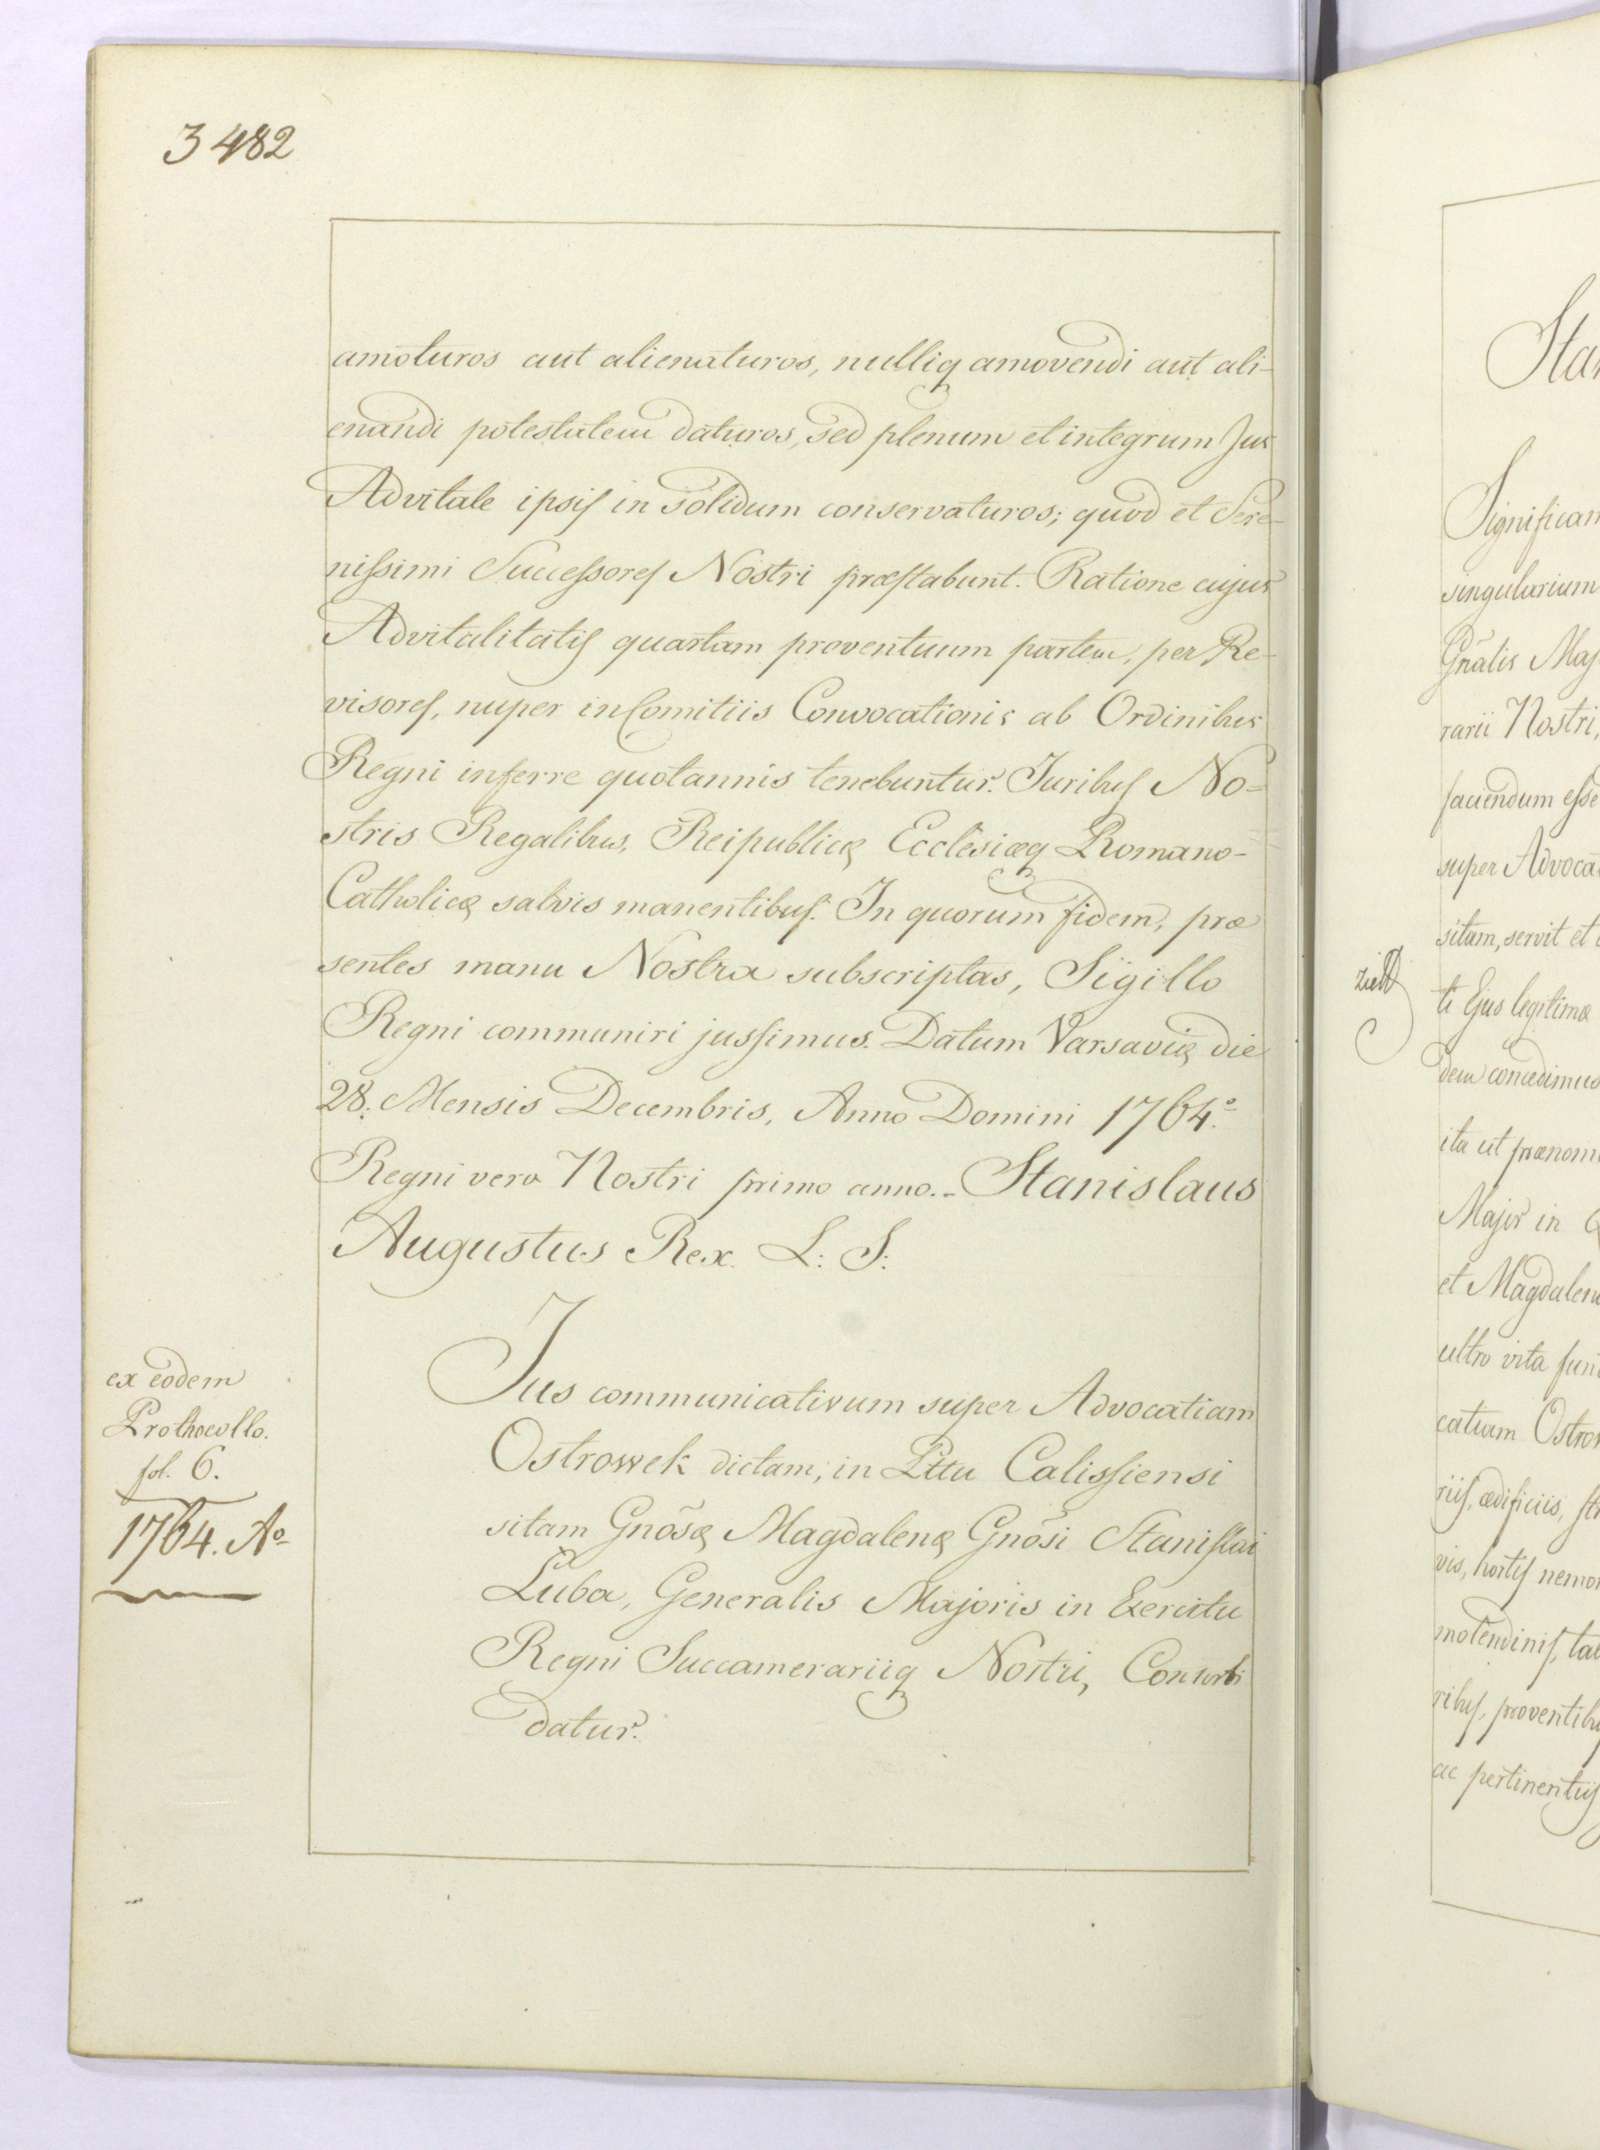 3482
amoturos aut alienaturos, nulliq amovendi aut ali-
enandi potestatem daturos, sed plenum et integrum Jus
Advitale ipsis in solidum conservaturos; quod et Sere-
nissimi Successores Nostri præstabunt. Ratione cujus
Advitalitatis quartam proventuum partem, per Re-
visores, nuper in Comitiis Convocationis ab Ordinibus
Regni inferre quotannis tenebuntur. Juribus No-
stris Regalibus, Reipublicæ Ecclesiæq Romano-
Catholicæ salvis manentibus. In quorum fidem, præ
sentes manu Nostra subscriptas, Sigillo
Regni communiri jussimus. Datum Varsaviæ die
28. Mensis Decembris, Anno Domini 1764.º
Regni vero Nostri primo anno.- Stanislaus
Augustus Rex. L: S:
ex eodem
Prothocollo.
fol. 6.
1764. Aº
Jus communicativum super Advocatiam
Ostrowek dictam, in Pttu Calissiensi
sitam Gnõsæ Magdalenæ Gnõsi Stanislai
Luba, Generalis Majoris in Exercitu
Regni Succamerariiq Nostri, Consorti
datur.
Sta
Significam
singularium
Gñalis Maj
rarii Nostri,
faciendum esse
super Advoca
sitam, servit et
ti Ejus legitimæ
dem concedimus
ita ut prænom
Major in
et Magdalen
ultro vita fun
catiam Ostro
riis, ædificiis, st
vis, hortis nemo
molendinis, ta
ribus, proventib
ac pertinentiis